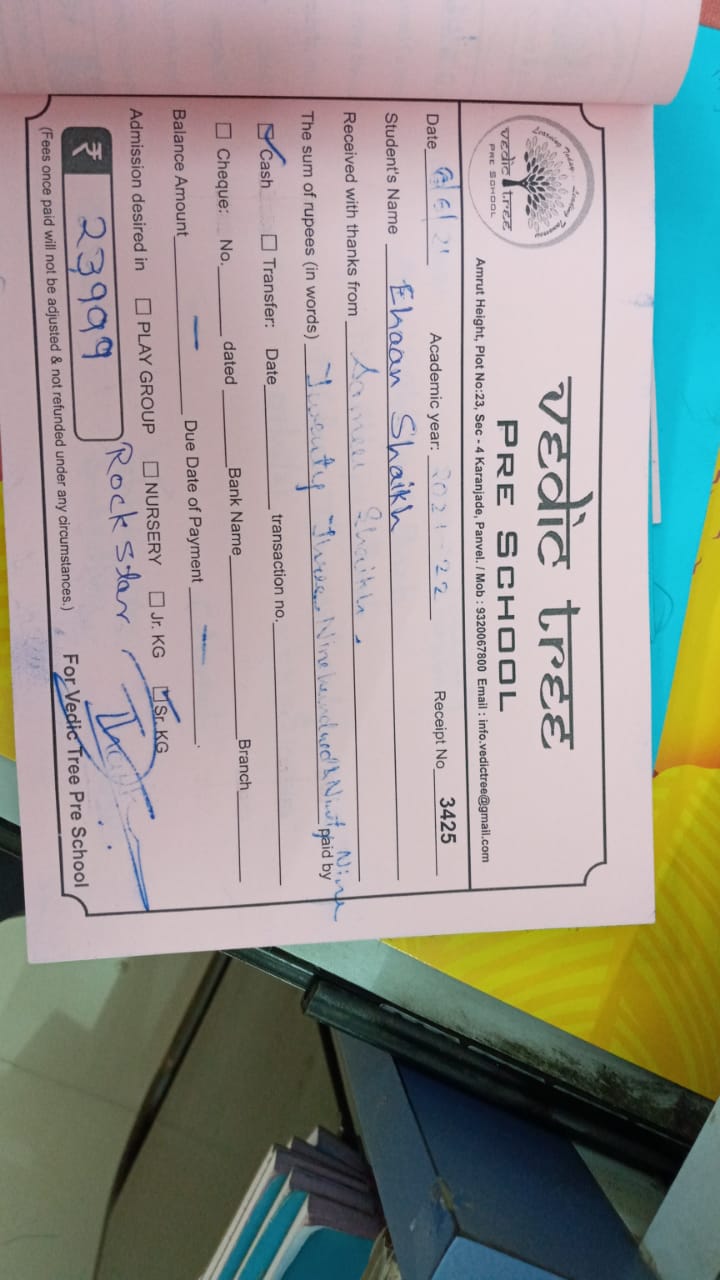 Learning Today Leading Tomorrow
vedic tree
PRE SCHOOL
vedic tree
PRE SCHOOL
Amrut Height, Plot No:23, Sec - 4 Karanjade, Panvel. / Mob : 9320067800 Email : info.vedictree@gmail.com
Date /6/21 Academic year: 2021-22 Receipt No 3425
Student's Name Ehaan Shaikh
Received with thanks from Sameer Shaikh.
The sum of rupees (in words) Twenty Three Nine hundred & Ninty Nine paid by
Cash Transfer: Date transaction no.
Cheque: No. dated Bank Name Branch
Balance Amount — Due Date of Payment —
Admission desired in PLAY GROUP NURSERY Jr. KG Sr. KG
₹ 23,999 Rockstar
For Vedic Tree Pre School
(Fees once paid will not be adjusted & not refunded under any circumstances.)